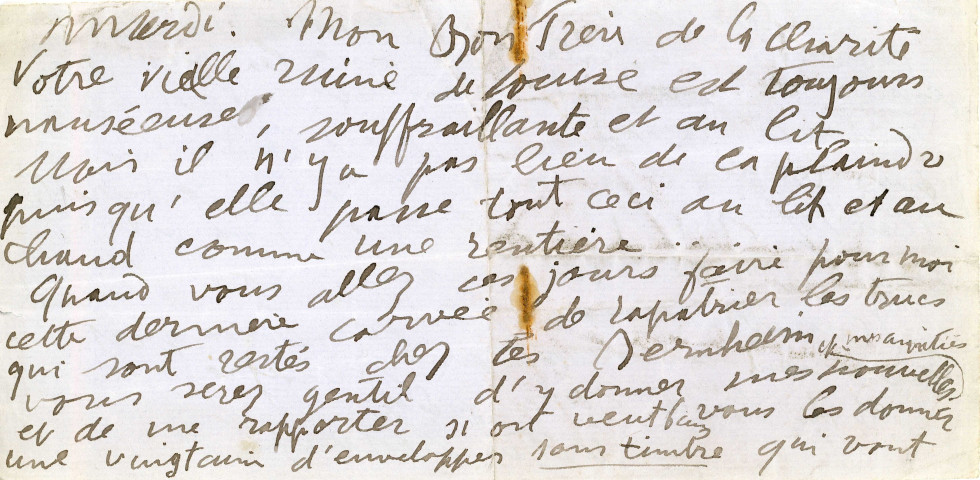 Mardi. Mon Bon Frère de la Charité
Votre vieille ruine de Louise est toujours
nauséeuse, souffraillante et au lit
Mais il n'y a pas lieu de la plaindre
puisqu'elle passe tout ceci au lit et au
chaud comme une rentière...
Quand vous allez ces jours faire pour moi
cette dernière corvée de rapatrier les trucs
qui sont restés chez les Bernheim
vous serez gentil d'y donner mes nouvelles
et mes amitiés
et de me rapporter si on veut bien vous les donner
une vingtaine d'enveloppes sans timbre qui vont